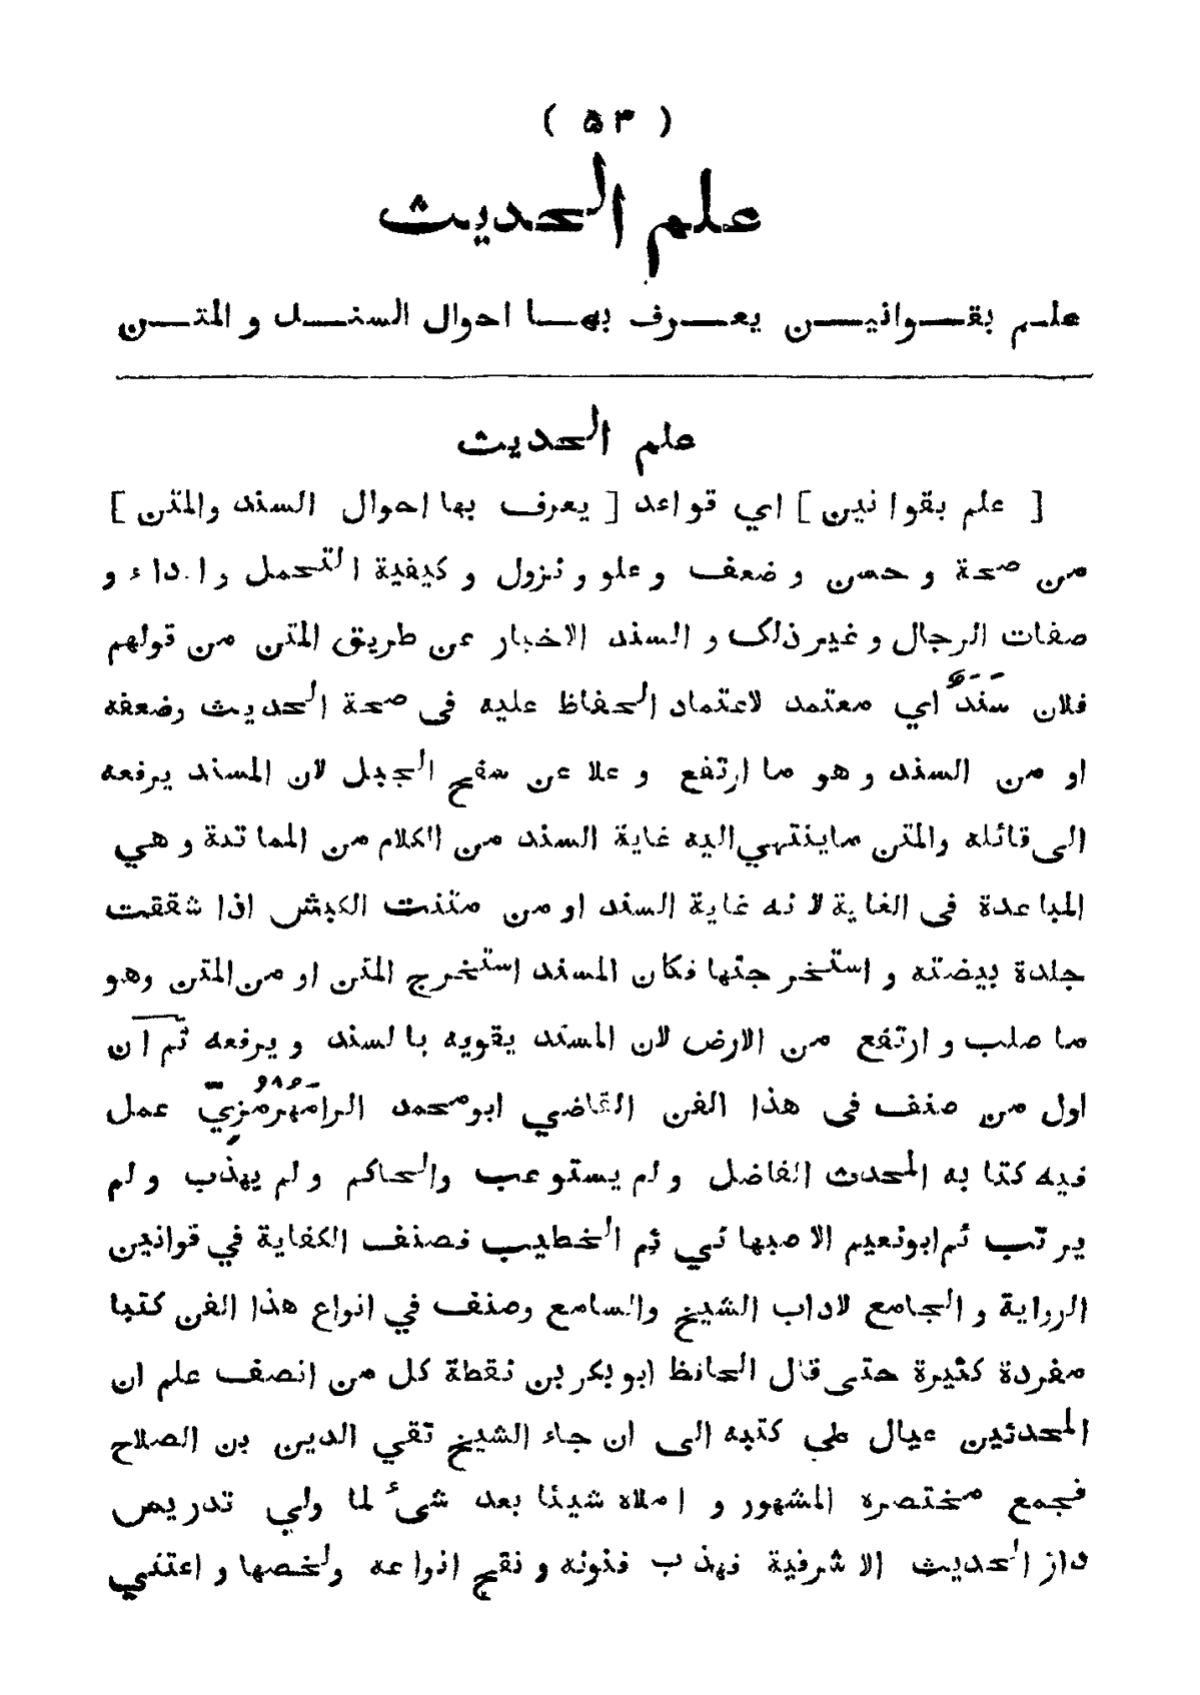 ( ۵۳ )
علم الحديث
علـم بقـوانيـن يعـرف بهـا احوال السنـد و المتـن
علم الحديث
[ علم بقوانين ] اي قواعد [ يعرف بها احوال السند والمتن ]
من صحة و حسن و ضعف و علو و نزول و كيفية التحمل و اداء و
صفات الرجال و غير ذلك و السند الاخبار عن طريق المتن من قولهم
فلان سَنَدٌ اي معتمد لاعتماد الحفاظ عليه فى صحة الحديث وضعفه
او من السند و هو ما ارتفع و علا عن سفح الجبل لان المسند يرفعه
الى قائله والمتن ماينتهي اليه غاية السند من الكلام من المماتنة و هي
المباعدة فى الغاية لانه غاية السند او من متنت الكبش اذا شققت
جلدة بيضته و استخرجتها فكان المسند استخرج المتن او من المتن وهو
ما صلب و ارتفع من الارض لان المسند يقويه بالسند و يرفعه ثم ان
اول من صنف فى هذا الفن القاضي ابو محمد الرامَهُرْمُزِيّ عمل
فيه كتابه المحدث الفاضل و لم يستوعب والحاكم و لم يهذّب و لم
يرتب ثم ابونعيم الاصبهاني ثم الخطيب فصنف الكفاية في قوانين
الرواية و الجامع لاداب الشيخ والسامع وصنف في انواع هذا الفن كتبا
مفردة كثيرة حتى قال الحافظ ابو بكر بن نقطة كل من انصف علم ان
المحدثين عيال على كتبه الى ان جاء الشيخ تقي الدين بن الصلاح
فجمع مختصره المشهور و املاه شيئا بعد شىء لما ولي تدريس
دار الحديث الاشرفية فهذب فنونه و نقح انواعه ولخصها و اعتنى